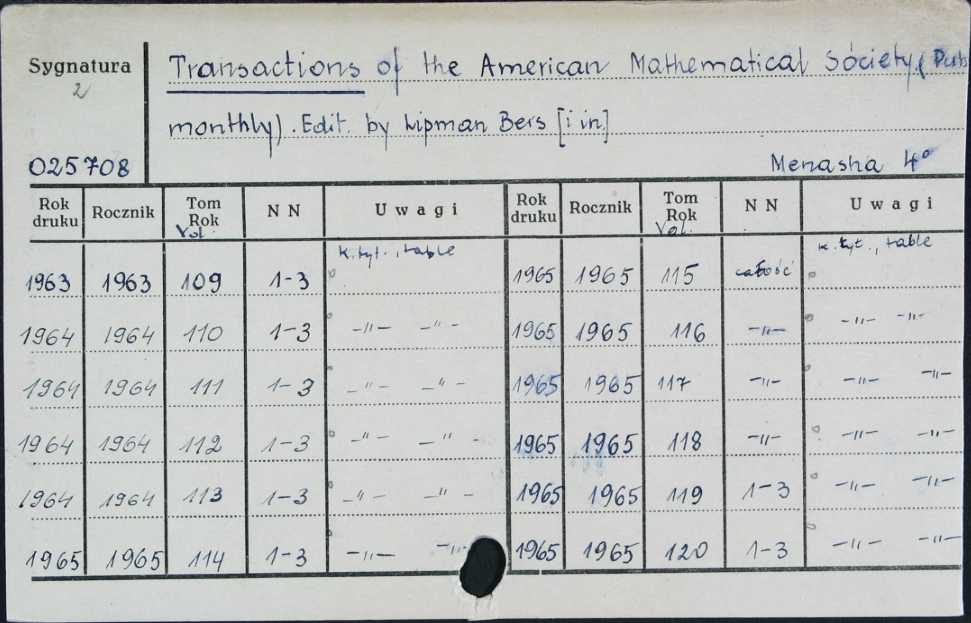 Sygnatura
2
025708
Transactions of the American Mathematical Society. (Publ.
monthly). Edit. by Lipman Bers [i in]
Menasha 4°
Rok druku Rocznik Tom Rok Vol. N N Uwagi Rok druku Rocznik Tom Rok Vol. N N Uwagi
k. tyt., table k. tyt., table
1963 1963 109 1-3 1965 1965 115 całość
1964 1964 110 1-3 -"- -"- 1965 1965 116 -"- -"- -"-
1964 1964 111 1-3 -"- -"- 1965 1965 117 -"- -"- -"-
1964 1964 112 1-3 -"- -"- 1965 1965 118 -"- -"- -"-
1964 1964 113 1-3 -"- -"- 1965 1965 119 1-3 -"- -"-
1965 1965 114 1-3 -"- -"- 1965 1965 120 1-3 -"- -"-